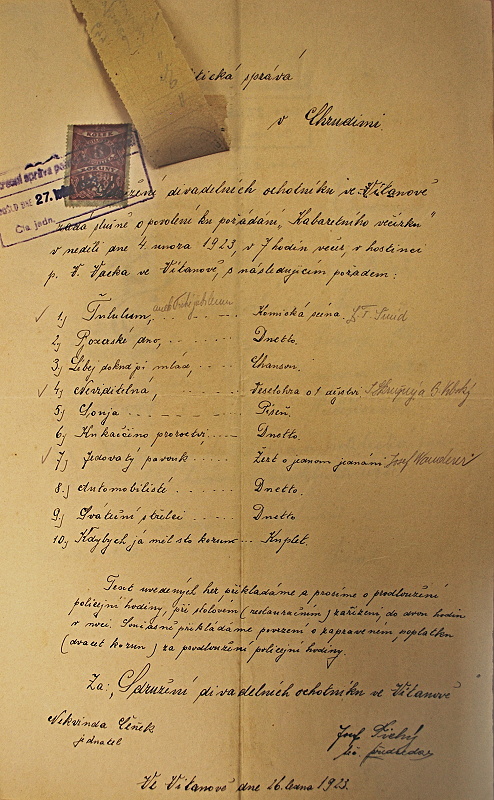 itická správa
v Chrudimi.
KOLEK
27.
Čís. jedn.
žení divadelních ochotníků ve Vítanově
žádá slušně o povolení ku pořádání „Kabaretního večírku"
v neděli dne 4. února 1923, v 7 hodin večer, v hostinci
p. V. Vacka ve Vítanově, s následujícím pořadem:
1.) Tululum, - - - Komická scéna.
2.) - - - Duetto.
3.) dokud jsi mlád, - - - Chanson.
4.) Neviditelná, - - - Veselohra o 1 dějství.
5.) Sonja - - - Píseň.
6.) Kukaččino proroctví - - - Duetto.
7.) Jedovatý pavouk - - - Žert o jednom jednání
8.) Automobilisté - - - Duetto.
9.) Sváteční střelci - - - Duetto
10.) Kdybych já měl sto korun - - - Kuplet.
Text uvedených her, přikládáme a prosíme o prodloužení
policejní hodiny, při stolovém (restauračním) zařízení, do dvou hodin
v noci. Současně přikládáme potvrzení o zapraveném poplatku
(dvacet korun) za prodloužení policejní hodiny.
Za: „Sdružení divadelních ochotníků ve Vítanově"
Nekvinda Čeněk
jednatel
Josef Tichý
předseda
Ve Vítanově dne 26. ledna 1923.